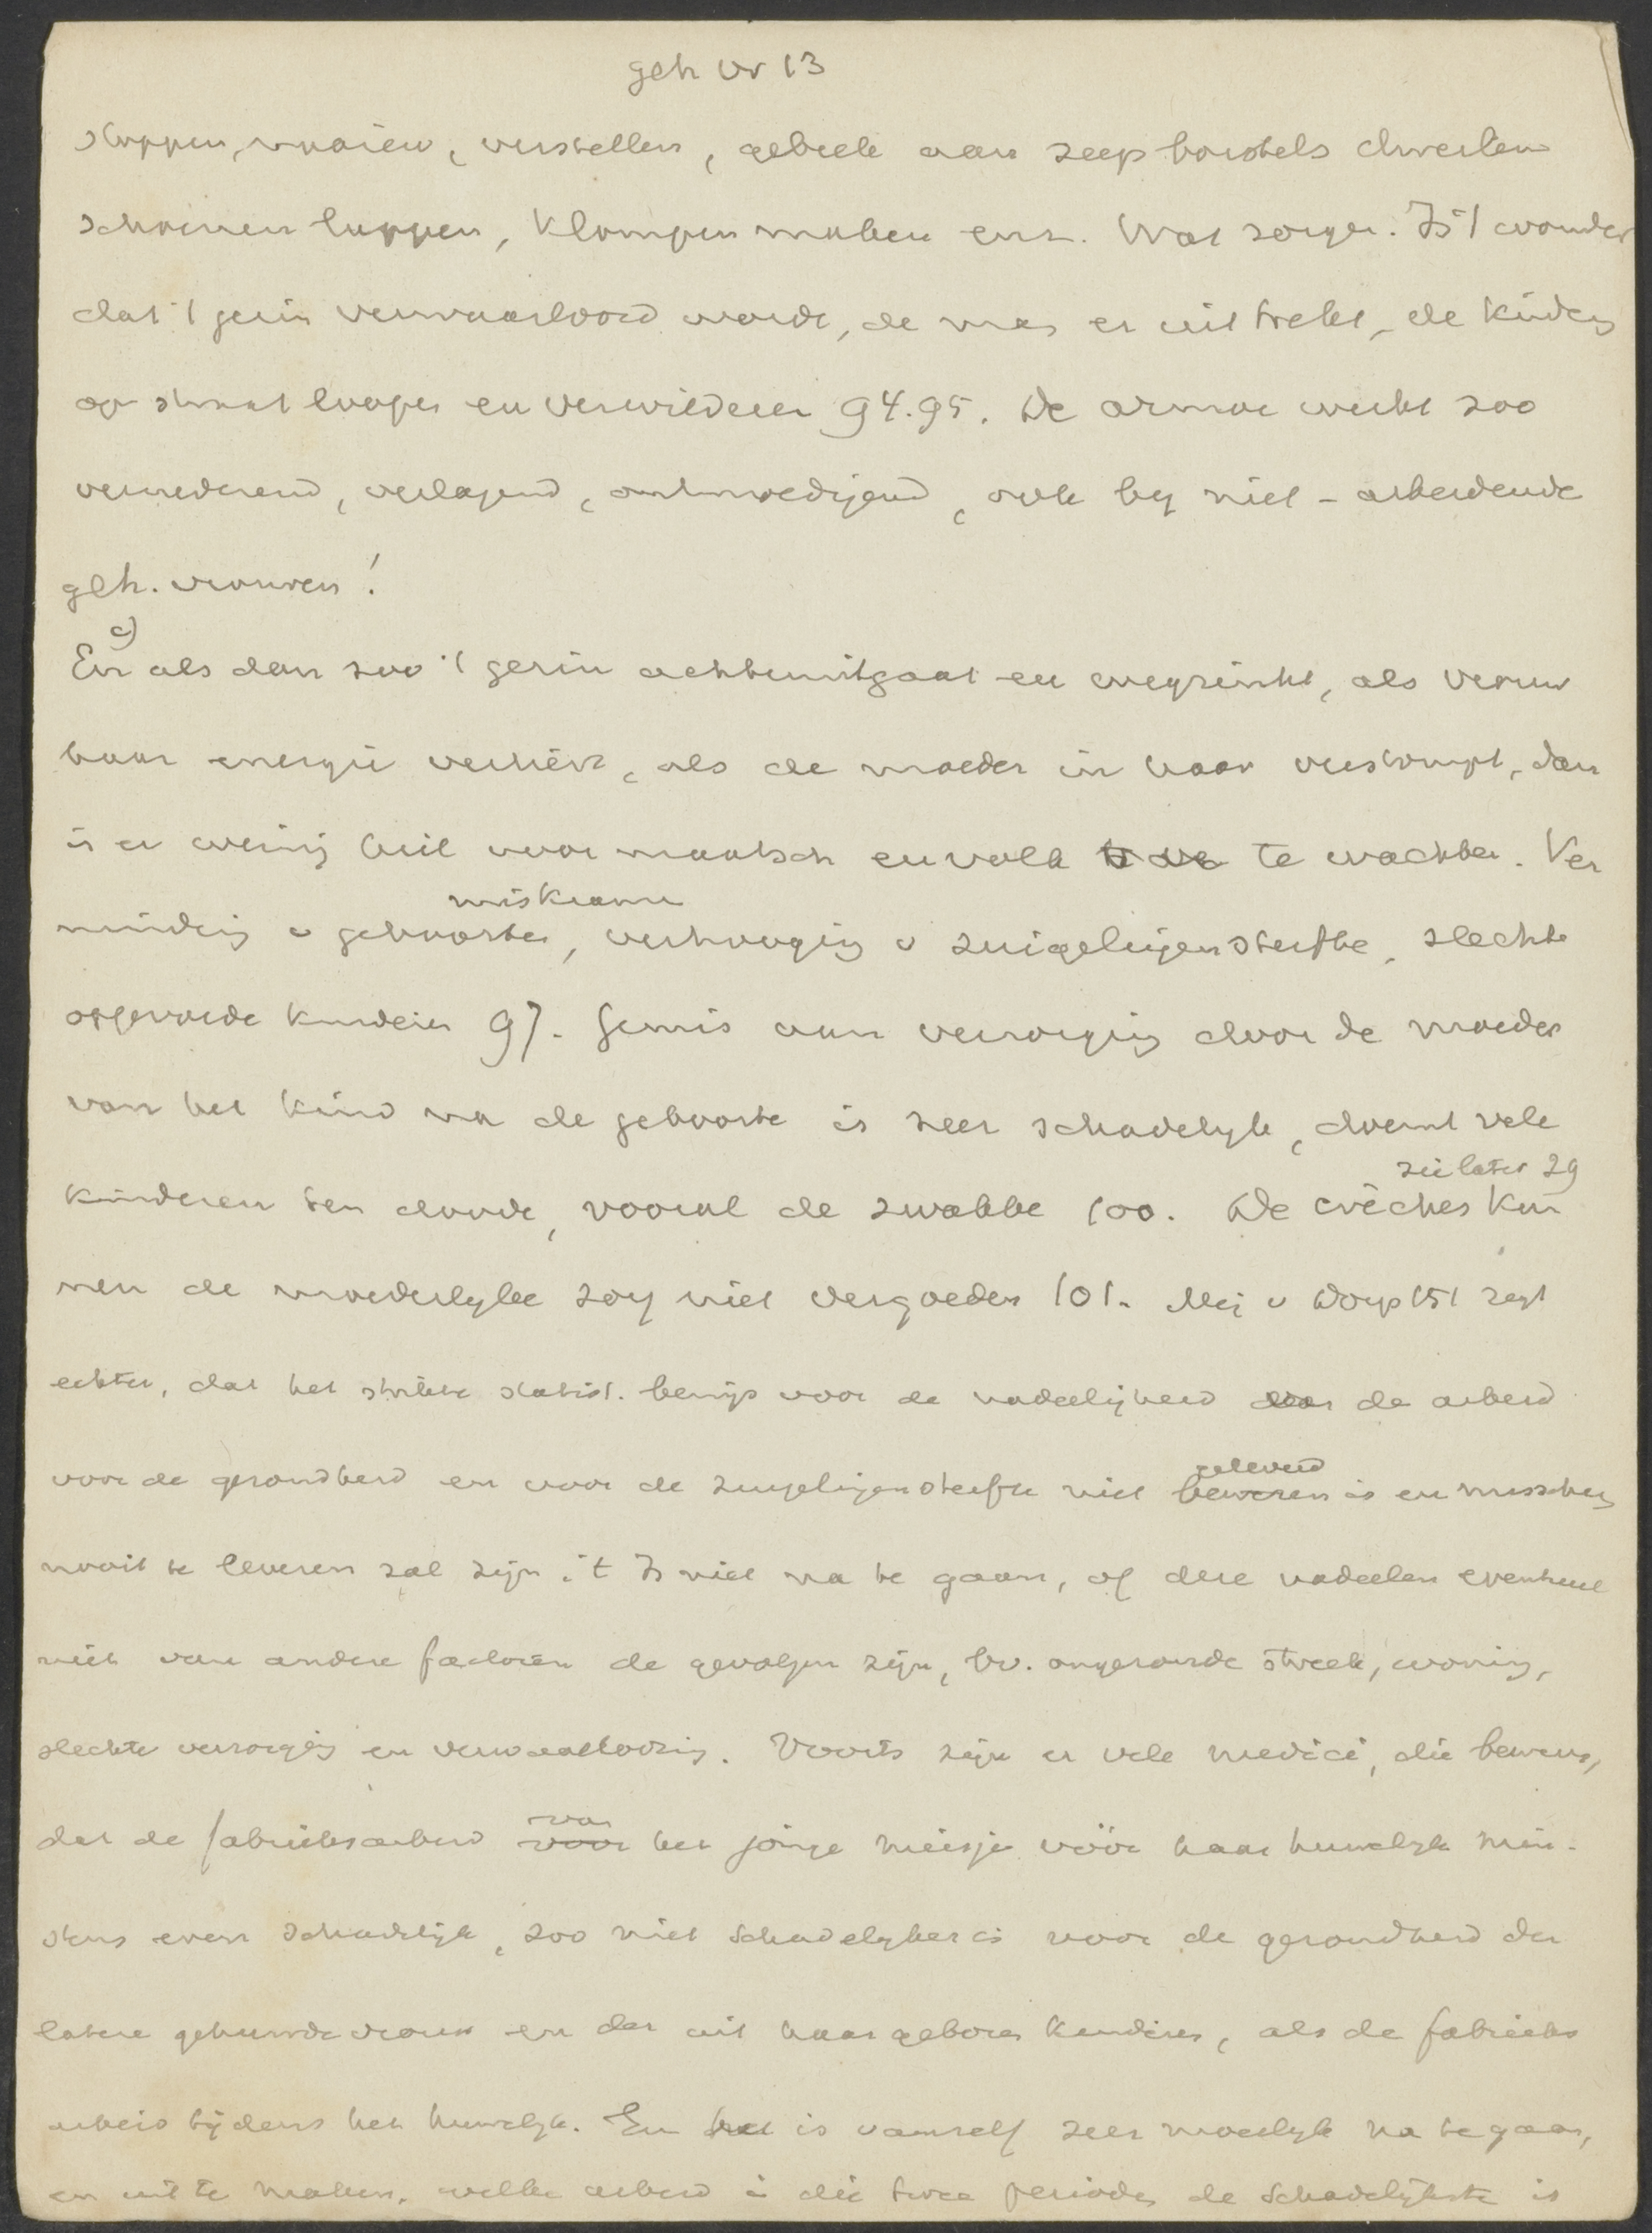 geh vr 13
stoppen, naaien, verstellen, gebeele aan zeep borstels dweilen
schoenen lappen, klompen maken enz. Wat zorgen. Is 't wonder
dat 't gezin verwaarloosd wordt, de man er uit trekt, de kinders
op straat loopen en verwilderen 94.95. De armoe werkt zoo
vernederend, verlagend, ontmoedigend, ook by niet-arbeidende
geh. vrouwen!
c)
En als dan zoo 't gezin achteruitgaat en wegzinkt, als vrouw
haar energie verliest, als de moeder in haar verstompt, dan
is er weinig heil voor maatsch en volk te wachten. Ver
miskramen
mindering v geboorten, verhooging v zuigelingensterfte, slechte
opgevoede kinderen 97. Gemis aan verzorging door de moeder
van het kind na de geboorte is zeer schadelyk, doemt vele
zie later 29
kinderen ten doode, vooral de zwakke 100. De crèches kun
nen de moederlyke zorg niet vergoeden 101. Mej v Dorp 151 zegt
echter, dat het strikte statist. bewijs voor de nadeeligheid van de arbeid
geleverd
voor de gezondheid en voor de zuigelingensterfte niet beweren is en misschien
nooit te leveren zal zijn. 't Is niet na te gaan, of deze nadeelen eventueel
niet van andere factoren de gevolgen zijn, bv. ongezonde streek, woning,
slechte verzorging en verwaarloozing. Voorts zijn er vele medici, die beweren,
van
dat de fabrieksarbeid voor het jonge meisje vóór haar huwelyk min-
stens even schadelijk, zoo niet schadelyker is voor de gezondheid der
latere gehuwde vrouw en der uit haar geboren kinderen, als de fabrieks
arbeid tijdens het huwelyk. En het is vanzelf zeer moeilyk na te gaan,
en uit te maken, welke arbeid in die twee perioden de schadelijkste is